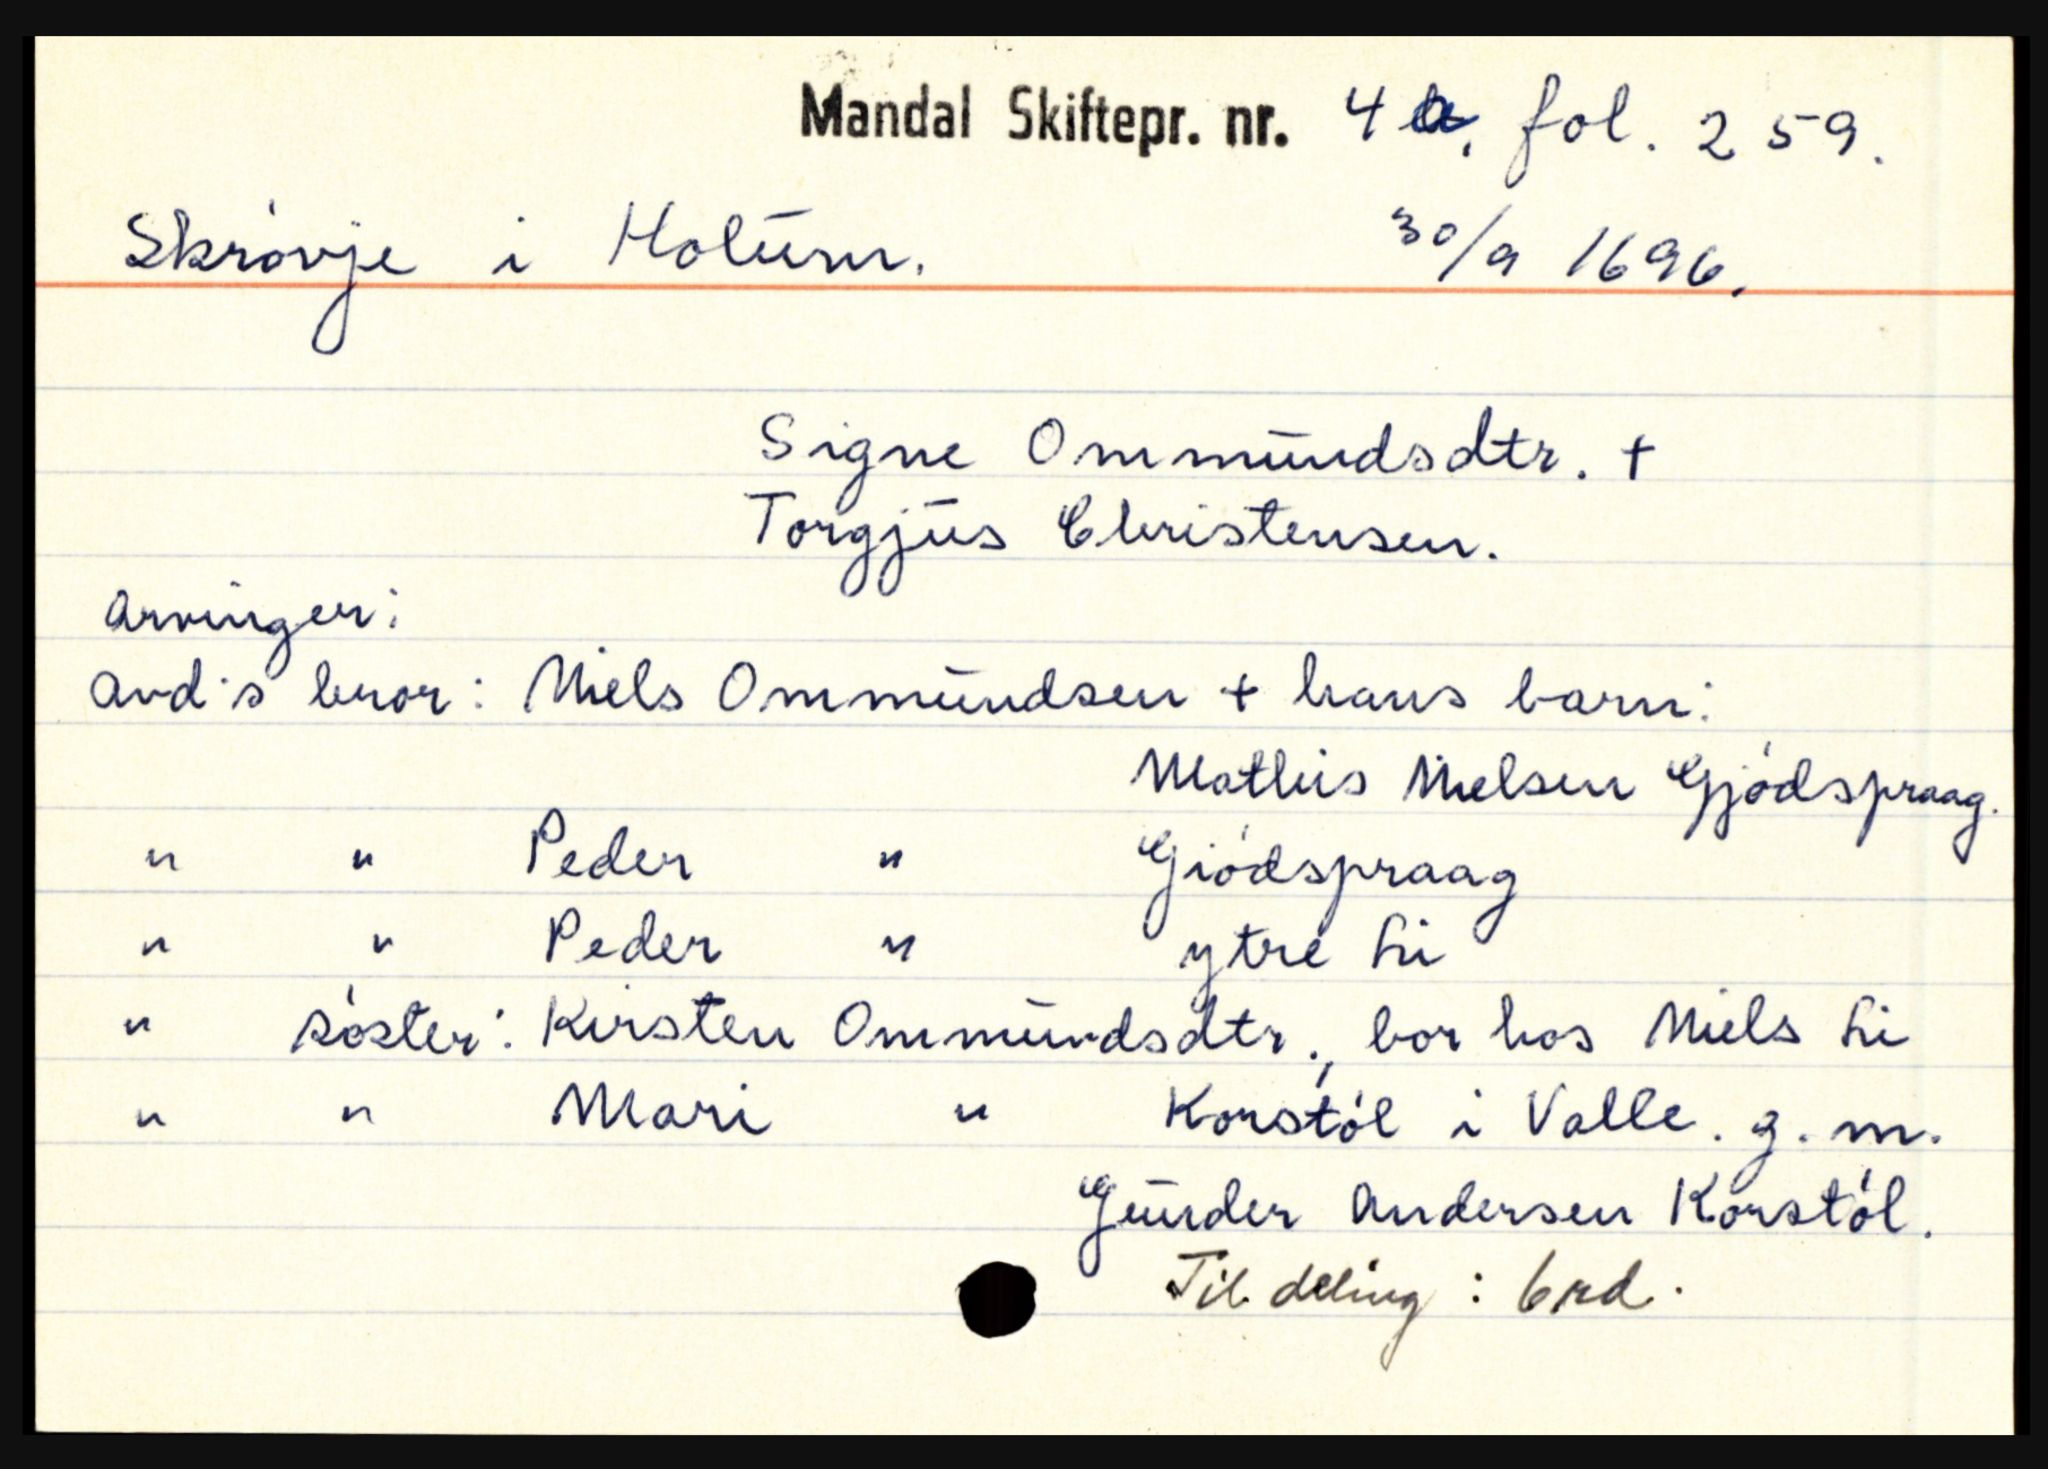 Mandal Skiftepr. nr. 4 a, fol. 259.
Skróvje i Holūm. 30/9 1696.
Signe Ommūndsdtr. +
Torgjūs Christensen.
Arvinger:
Avd's bror: Niels Ommūndsen + hans barn:
Mathis Nielsen Gjódspraag.
" " Peder " Giódspraag
" " Peder " ytre Li
" sóster: Kirsten Ommūndsdtr., bor hos Niels Li
" " Mari " Korstól i Valle. g. m.
Gūnder Andersen Korstól.
Til deling : 6 rd.